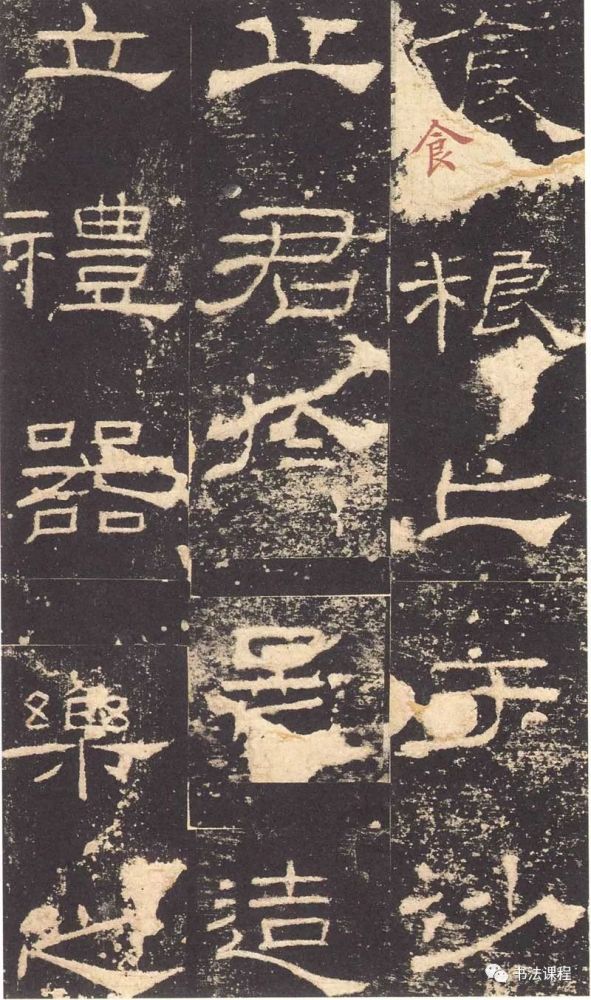 食粮亡于沙
食
丘君於是造
立禮器樂之
书法课程